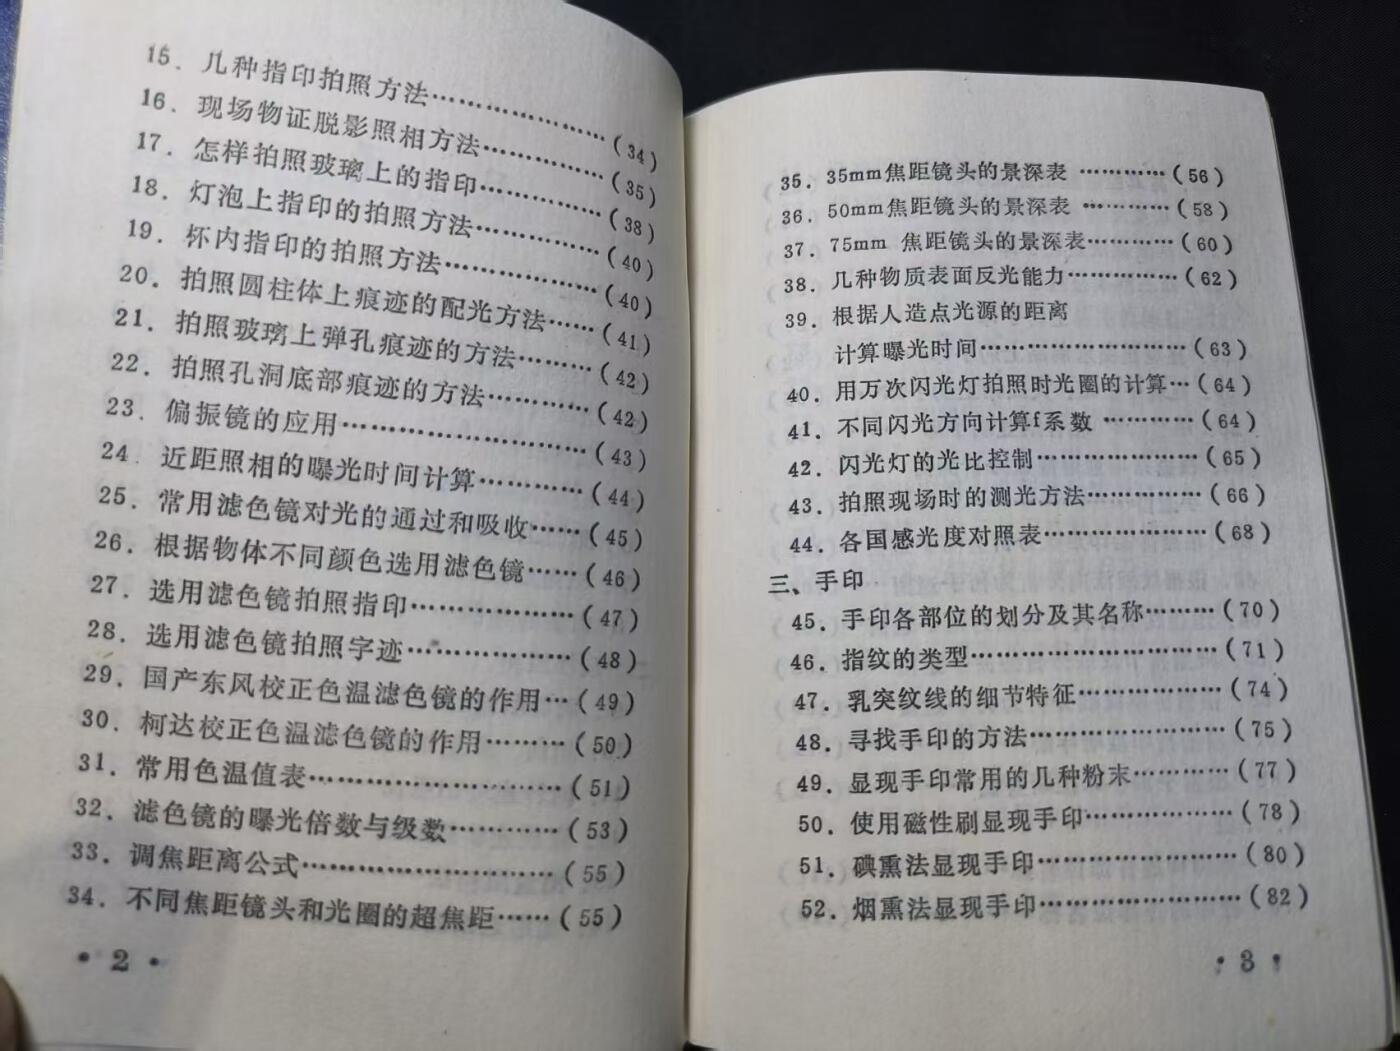 15. 几种指印拍照方法………………(34)
16. 现场物证脱影照相方法…………(35)
17. 怎样拍照玻璃上的指印…………(38)
18. 灯泡上指印的拍照方法…………(40)
19. 怀内指印的拍照方法……………(40)
20. 拍照圆柱体上痕迹的配光方法……(41)
21. 拍照玻璃上弹孔痕迹的方法………(42)
22. 拍照孔洞底部痕迹的方法…………(42)
23. 偏振镜的应用……………………(43)
24. 近距照相的曝光时间计算…………(44)
25. 常用滤色镜对光的通过和吸收……(45)
26. 根据物体不同颜色选用滤色镜……(46)
27. 选用滤色镜拍照指印………………(47)
28. 选用滤色镜拍照字迹………………(48)
29. 国产东风校正色温滤色镜的作用…(49)
30. 柯达校正色温滤色镜的作用………(50)
31. 常用色温值表………………………(51)
32. 滤色镜的曝光倍数与级数…………(53)
33. 调焦距离公式………………………(55)
34. 不同焦距镜头和光圈的超焦距……(55)
• 2 •
35. 35mm焦距镜头的景深表…………(56)
36. 50mm焦距镜头的景深表…………(58)
37. 75mm 焦距镜头的景深表…………(60)
38. 几种物质表面反光能力……………(62)
39. 根据人造点光源的距离
计算曝光时间………………………(63)
40. 用万次闪光灯拍照时光圈的计算…(64)
41. 不同闪光方向计算f系数…………(64)
42. 闪光灯的光比控制…………………(65)
43. 拍照现场时的测光方法……………(66)
44. 各国感光度对照表…………………(68)
三、手印
45. 手印各部位的划分及其名称………(70)
46. 指纹的类型…………………………(71)
47. 乳突纹线的细节特征………………(74)
48. 寻找手印的方法……………………(75)
49. 显现手印常用的几种粉末…………(77)
50. 使用磁性刷显现手印………………(78)
51. 碘熏法显现手印……………………(80)
52. 烟熏法显现手印……………………(82)
• 3 •